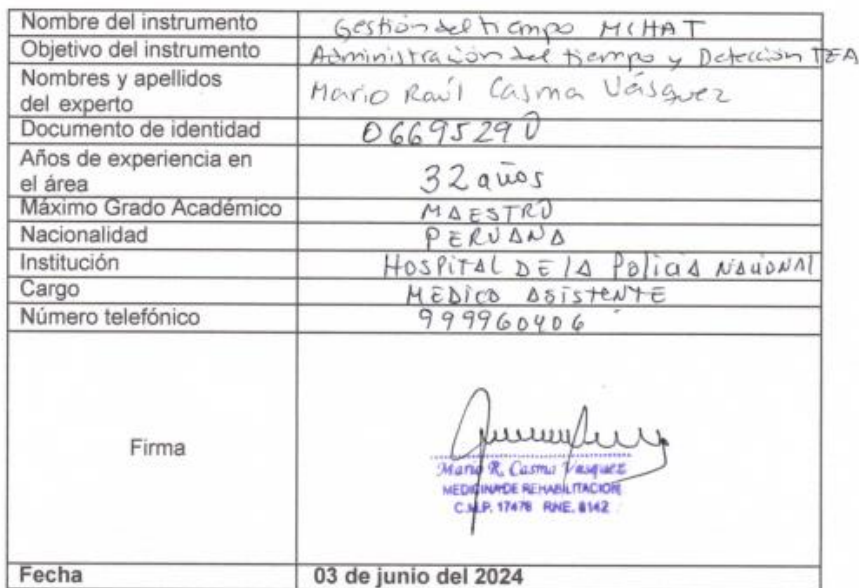 Nombre del instrumento Gestión del tiempo MCHAT
Objetivo del instrumento Administración del tiempo y Detección TEA
Nombres y apellidos
del experto Mario Raúl Casma Vásquez
Documento de identidad 06695290
Años de experiencia en
el área 32 años
Máximo Grado Académico MAESTRO
Nacionalidad PERUANA
Institución HOSPITAL DE LA Policia NACIONAL
Cargo MÉDICO ASISTENTE
Número telefónico 999960406
Firma
Mario R. Casma Vasquez
MEDICINA DE REHABILITACION
C.M.P. 17478 RNE. 8142
Fecha 03 de junio del 2024